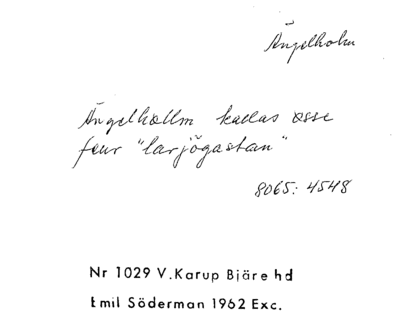 Ängelholm
Ängelhollm kallas osse
feur "larjögastan"
8065: 4548
Nr 1029 V.Karup Bjäre hd
Emil Söderman 1962 Exc.